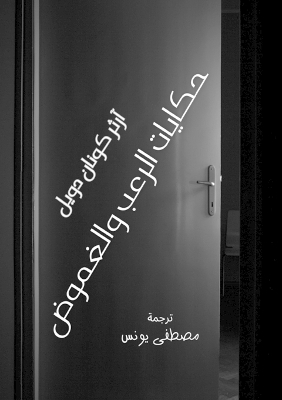 آرثر كونان دويل
حكايات الرعب والغموض
ترجمة
مصطفى يونس